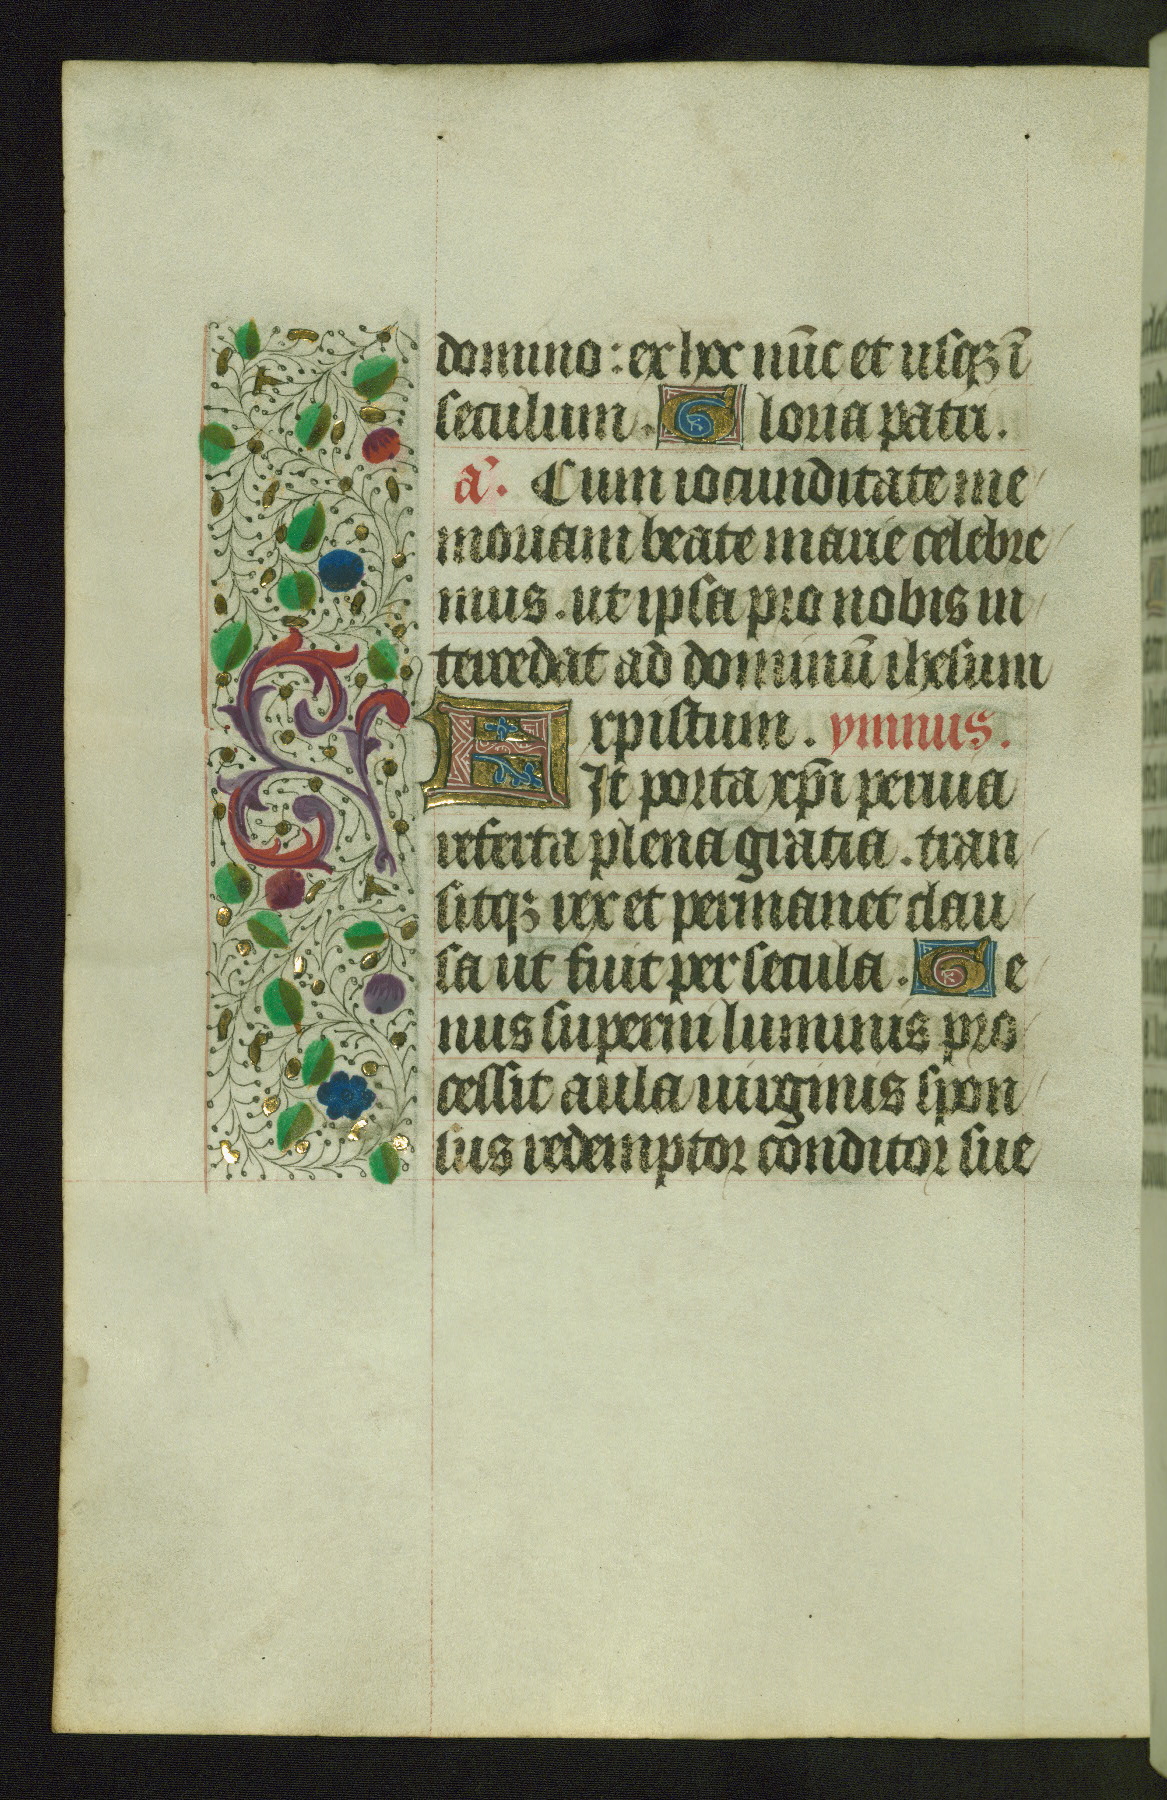 domino : ex hoc nūc et usqꝫ ī
seculum . Gloria patri .
a͂. Cum iocunditate me
moriam beate marie celebre
mus . ut ipsa pro nobis in
tercedat ad dominū ihesum
xpistum . ymnus .
Fit porta xp̄i peruia
referta plena gratia . tran
sitqꝫ rex et permanet clau
sa ut fuit per secula . Ge
nus superni luminis pro
cessit aula uirginis spon
sus redemptor conditor sue